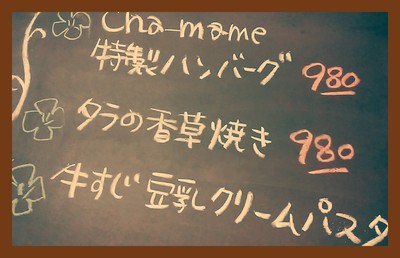 Cha-mame
特製ハンバーグ 980
タラの香草焼き 980
牛すじ 豆乳クリームパスタ